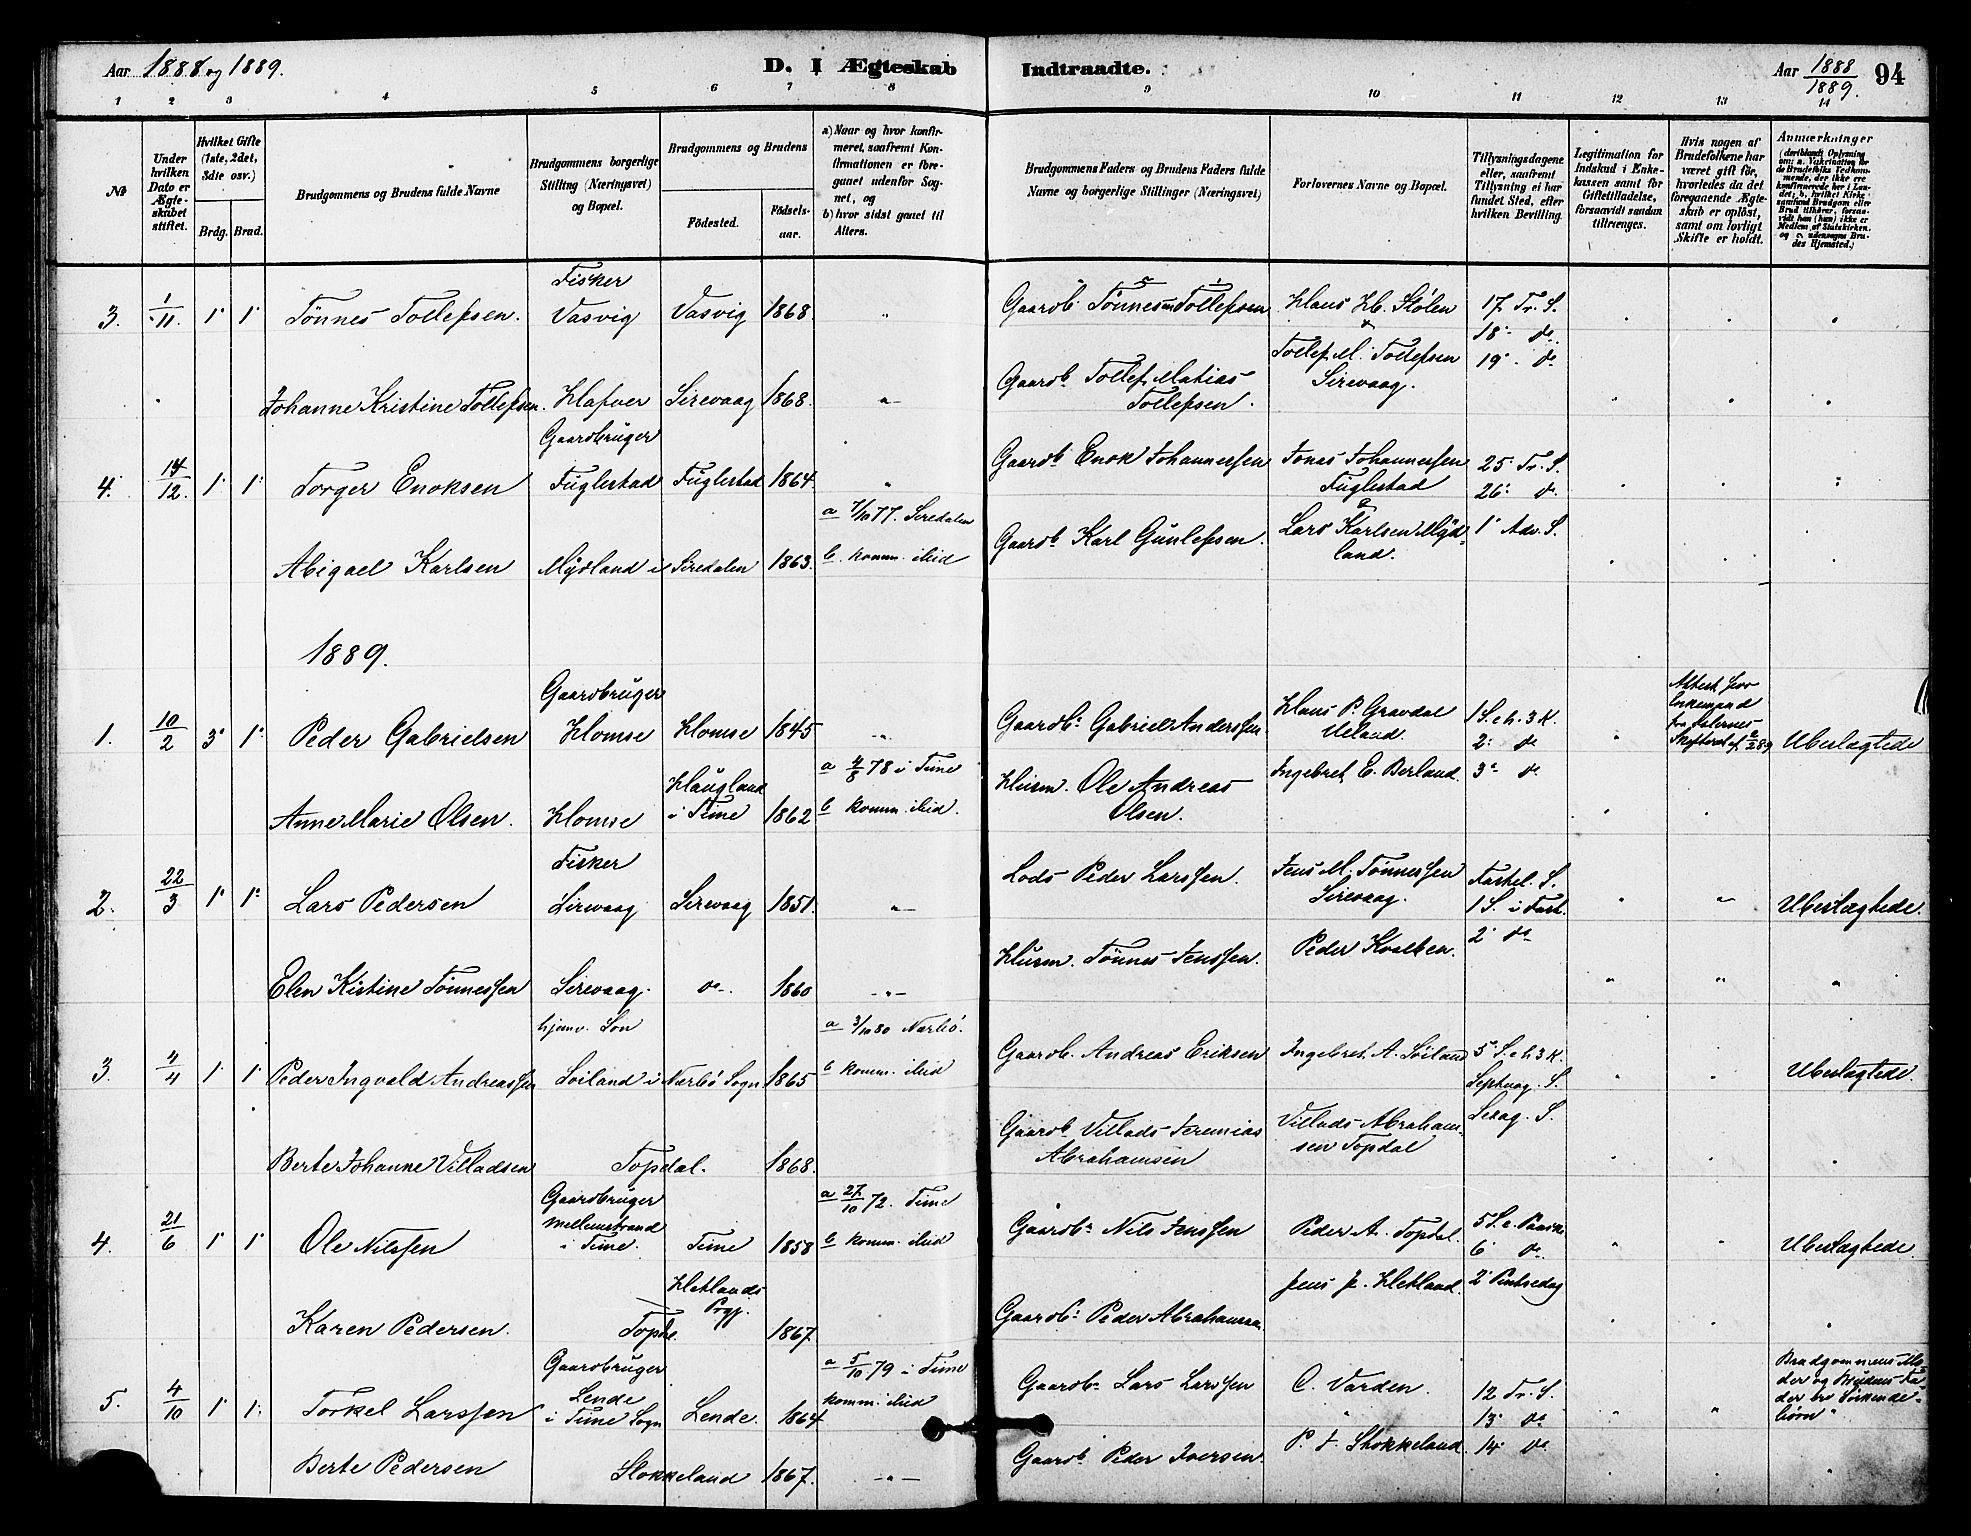 Aar 1888 og 1889.
D. I Ægteskab Indtraadte.
Aar 1888/1889. 94
1 2 3 4 5 6 7 8 9 10 11 12 13 14
No
Under hvilken Dato er Ægteskabet stiftet.
Hvilket Gifte (1ste, 2det, 3die osv.)
Brdg. Brud.
Brudgommens og Brudens fulde Navne
Brudgommens borgerlige Stilling (Næringsvei) og Bopæl.
Brudgommens og Brudens
Fødested. Fødselsaar.
a) Naar og hvor konfirmeret, saafremt Konfirmationen er foregaaet udenfor Sognet, og
b) hvor sidst gaaet til Alters.
Brudgommens Faders og Brudens Faders fulde Navne og borgerlige Stillinger (Næringsvei)
Forlovernes Navne og Bopæl.
Tillysningsdagene eller, saafremt Tillysning ei har fundet Sted, efter hvilken Bevilling.
Legitimation for Indskud i Enkekassen samt for Giftetilladelse, forsaavidt saadan tiltrænges.
Hvis nogen af Brudefolkene har været gift før, hvorledes da det foregaaende Ægteskab er opløst, samt om lovligt Skifte er holdt.
Anmærkninger
3. 1/11. 1 1 Tønnes Tollefsen. Fisker Vasvig Vasvig 1868. " Gaardb. Tønnes Tollefsen Klaus H. Stølen & 17. Tr. S. 18. do. 19. do
Johanne Kristine Tollefsen. Hafver Sirevaag 1868. " Gaardb. Tollef Matias Tollefsen. Tollef M. Tollefsen Sirevaag.
4. 14/12. 1 1 Torger Enoksen Gaardbruger Fuglestad Fuglestad 1864. " Gaardb. Enok Johannessen Jonas Johannessen Fuglestad & 25. Tr. S. 26. do
Abigael Karlsen Mydland i Siredalen 1863. a 7/10 77. Siredalen b. komm. ibid Gaardb. Karl Gunlefsen. Lars Karlsen Mydland. 1 Adv. S.
1889.
1. 10/2 3 1 Peder Gabrielsen Gaardbruger Homse Homse 1845 " Gaardb. Gabriel Anderssen Hans P. Gravdal Ueland. 1 S. e. h. 3 K. 2. do Ubeslægtede
Anne Marie Olsen. Homse Haugland i Time 1862 a 4/8 78 i Time b komm. ibid. Husm. Ole Andreas Olsen. Ingebret E. Berland. 3. do
2. 22/3 1 1 Lars Pedersen Fisker Sirevaag Sirevaag 1851. " Lods Peder Larssen. Jens M. Tønnessen Sirevaag. Fastel. S. 1 S. i Fast. Ubeslægtede.
Elen Kistine Tønnessen Sirevaag. do. 1860 " Husm. Tønnes Jenssen. Peder Kvalben. 2 do
3. 4/4 1 1 Peder Ingvald Andreassen hjemv. Søn Soiland i Nærbø Sogn 1865 a 3/10 80 Nærbø. b komm. ibid Gaardb. Andreas Eriksen Ingebret A. Soiland 5 S. e. h. 3 K. Septuag. S. Ubeslægtede.
Berte Johanne Villadsen Topdal. 1868. Gaardb. Villads Jeremias Abrahamsen Villads Abrahamsen Topdal Sexag. S.
4. 21/6 1 1 Ole Nilssen Gaardbruger Mellemstrand i Time. Time 1858 a 27/10 72. Time b komm. ibid Gaardb. Nils Jenssen Peder A. Topdal. 5 S. e. Paaske 6 do Ubeslægtede.
Karen Pedersen. Hetlands Prgj. 1867. Gaardb. Peder Abrahamsen Jens J. Hetland. 2 Pintsedag
5. 4/10 1 1. Torkel Larssen Gaardbruger Lende i Time Sogn Lende. 1864 a 5/10 79 i Time komm. ibid Gaardb. Lars Larssen C. Varden. 12 Tr. S. 13 do Brudgommens Moder og Brudens Fader er Søskendebørn
Berte Pedersen Stokkeland 1867. " Gaardb. Peder Iversen. P. I. Stokkeland. 14 do